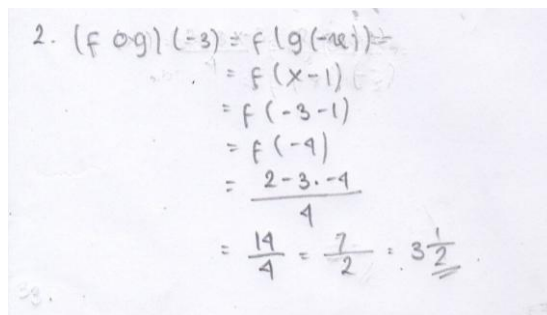 2. (f o g) (-3) = f (g(-x)) =
= f (x-1)
= f (-3-1)
= f (-4)
= 2-3.-4 / 4
= 14/4 = 7/2 = 3 1/2